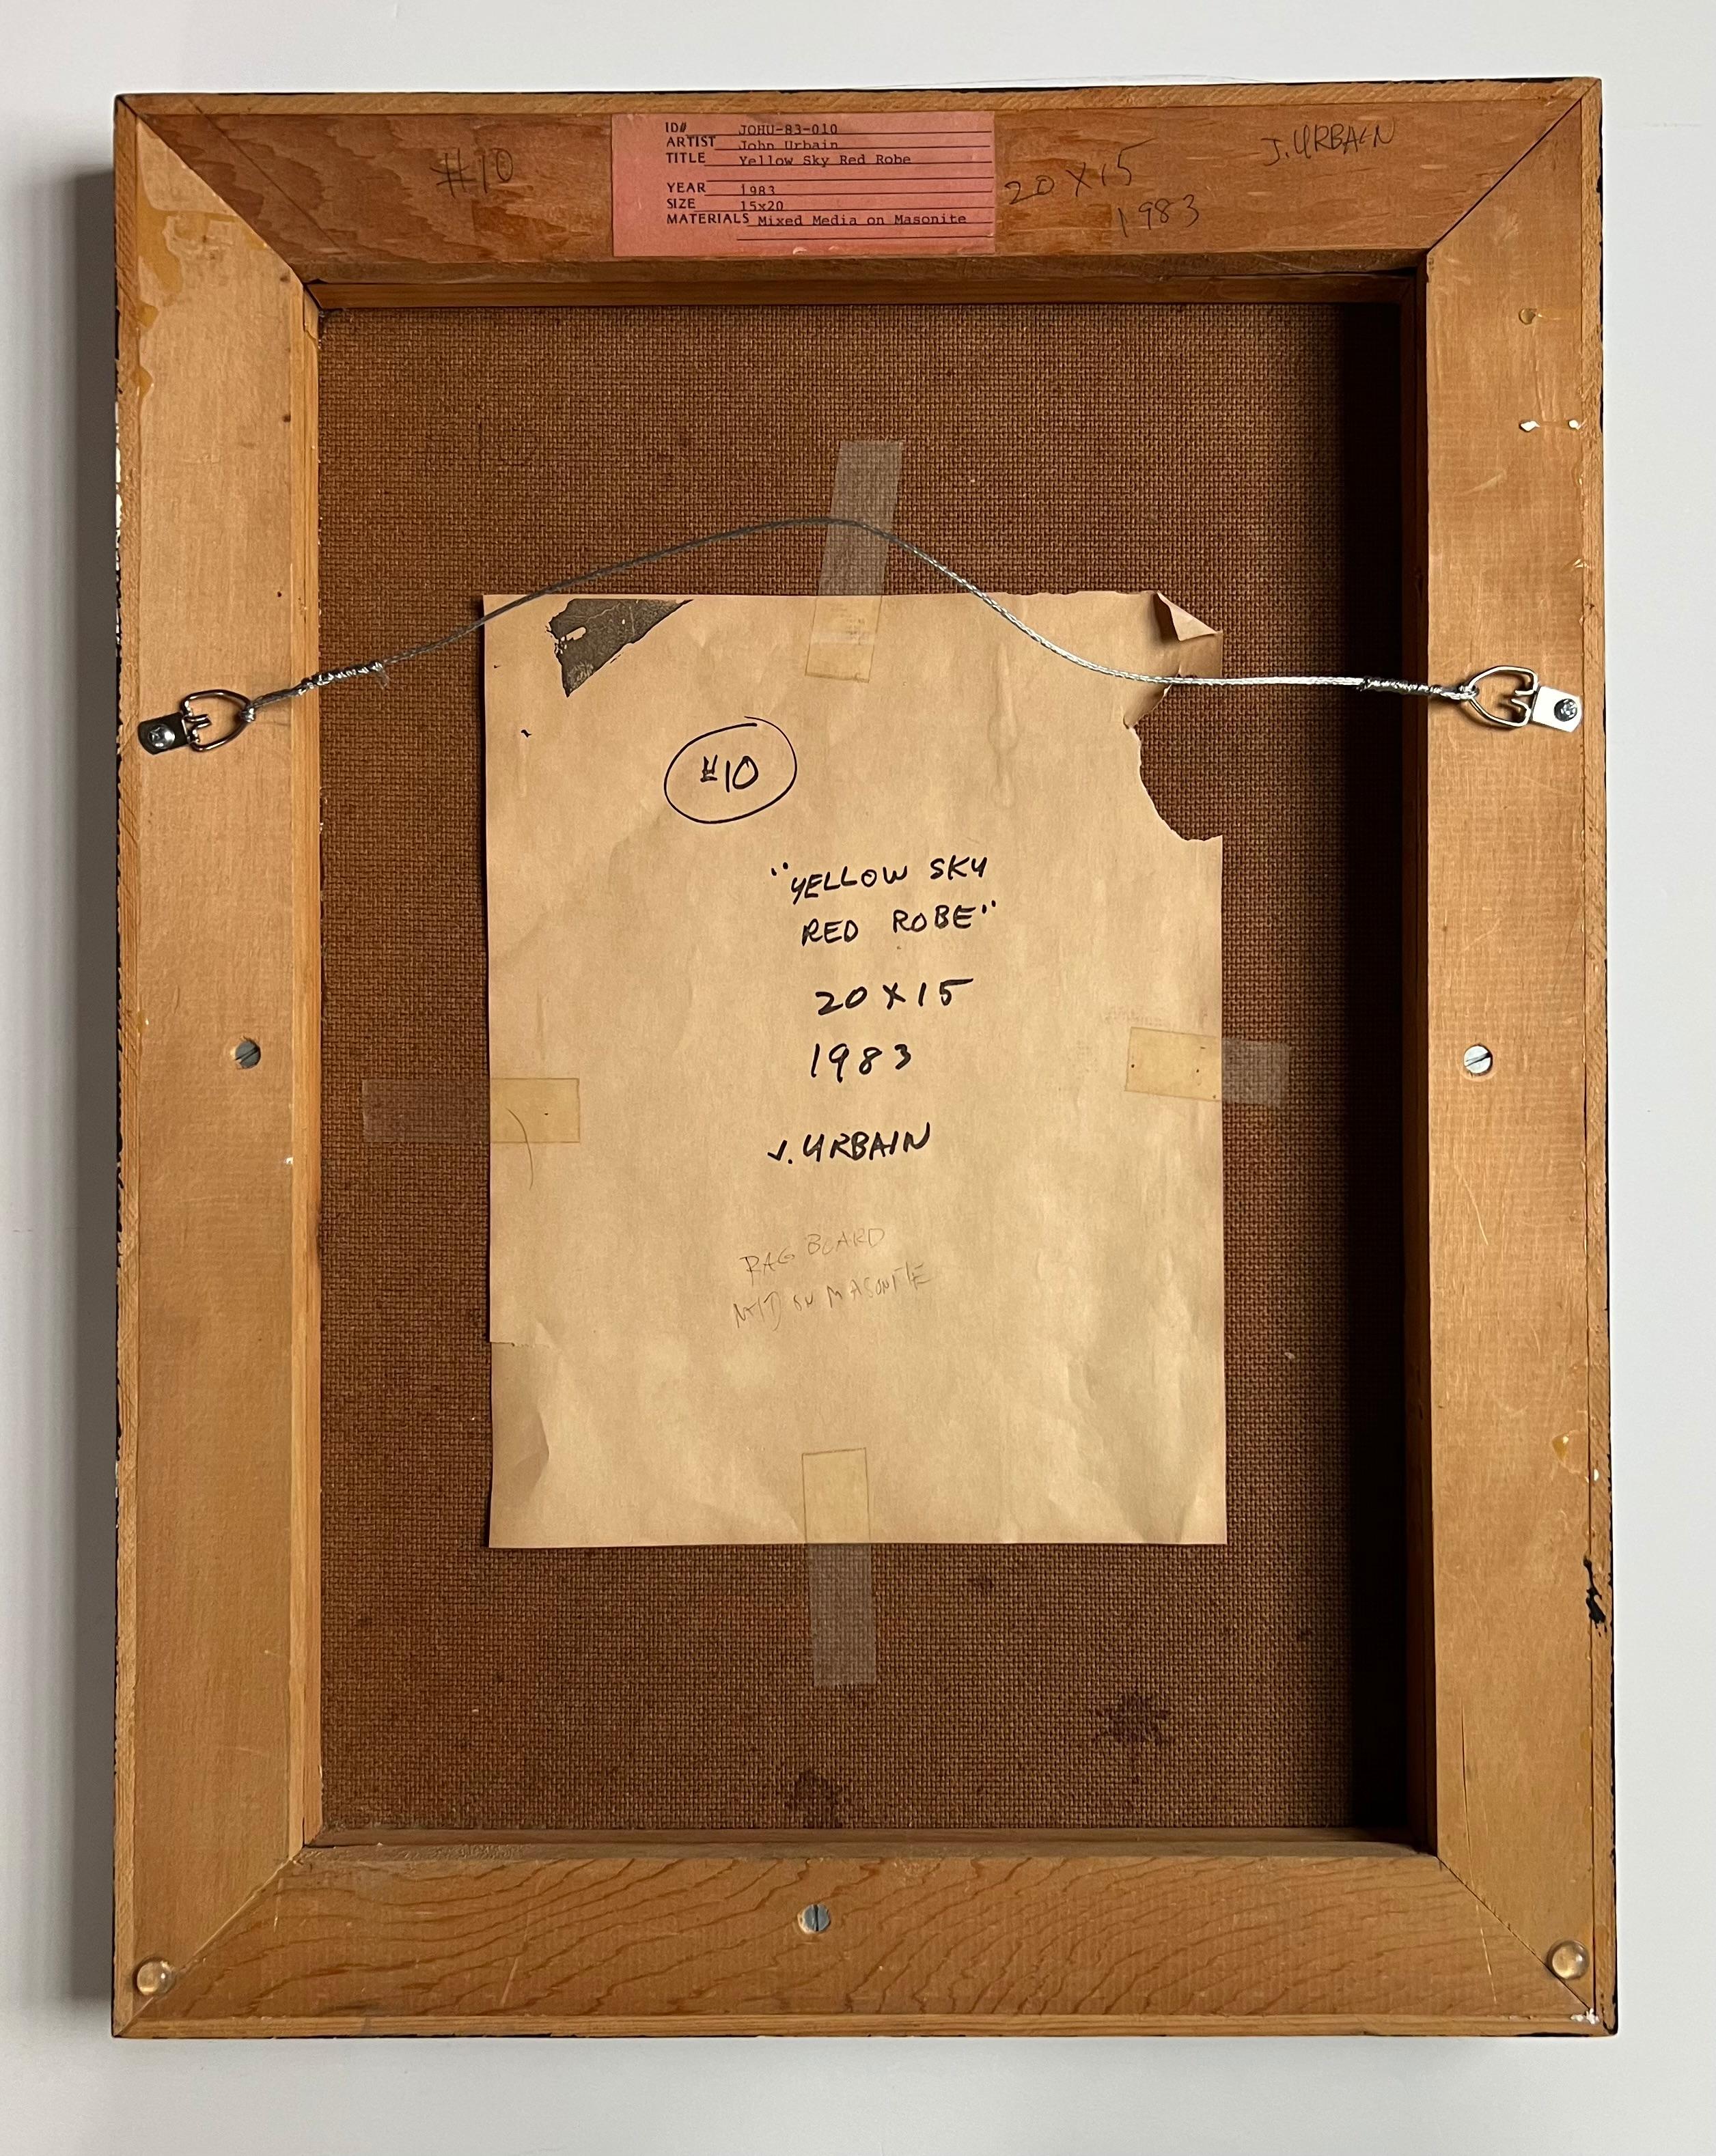 #10
ID# JOHU-83-010
ARTIST John Urbain
TITLE Yellow Sky Red Robe
YEAR 1983
SIZE 15x20
MATERIALS Mixed Media on Masonite
20 X 15
1983
J. URBAIN
#10
"YELLOW SKY
RED ROBE"
20 X 15
1983
J. URBAIN
RAG BOARD
ON MASONITE